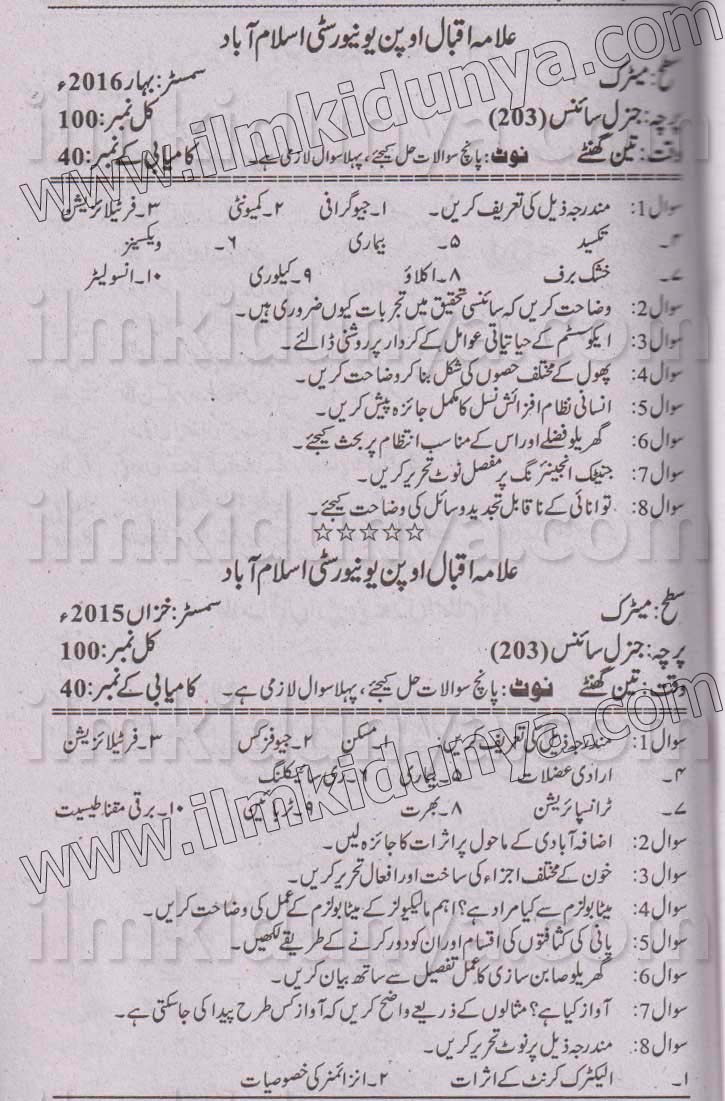 علامہ اقبال اوپن یونیورسٹی اسلام آباد
سطح: میٹرک سمسٹر: بہار 2016ء
پرچہ: جنرل سائنس (203) کل نمبر: 100
وقت: تین گھنٹے نوٹ: پانچ سوالات حل کیجئے، پہلا سوال لازمی ہے۔ کامیابی کے نمبر: 40
سوال 1: مندرجہ ذیل کی تعریف کریں۔ ۱۔ جیوگرافی ۲۔ کمیونٹی ۳۔ فرٹیلائزیشن
۴۔ تکسید ۵۔ بیماری ۶۔ ویکسینز
۷۔ خشک برف ۸۔ اکلاؤ ۹۔ کیلوری ۱۰۔ انسولیٹر
سوال 2: وضاحت کریں کہ سائنسی تحقیق میں تجربات کیوں ضروری ہیں۔
سوال 3: ایکوسسٹم کے حیاتیاتی عوامل کے کردار پر روشنی ڈالئے۔
سوال 4: پھول کے مختلف حصوں کی شکل بنا کر وضاحت کریں۔
سوال 5: انسانی نظام افزائش نسل کا مکمل جائزہ پیش کریں۔
سوال 6: گھریلو فضلے اور اس کے مناسب انتظام پر بحث کیجئے۔
سوال 7: جنیٹک انجینئرنگ پر مفصل نوٹ تحریر کریں۔
سوال 8: توانائی کے ناقابل تجدید وسائل کی وضاحت کیجئے۔
☆☆☆☆☆
علامہ اقبال اوپن یونیورسٹی اسلام آباد
سطح: میٹرک سمسٹر: خزاں 2015ء
پرچہ: جنرل سائنس (203) کل نمبر: 100
وقت: تین گھنٹے نوٹ: پانچ سوالات حل کیجئے، پہلا سوال لازمی ہے۔ کامیابی کے نمبر: 40
سوال 1: مندرجہ ذیل کی تعریف کریں۔ ۱۔ مسکن ۲۔ جیوفزکس ۳۔ فرٹیلائزیشن
۴۔ ارادی عضلات ۵۔ بیماری ۶۔ ری سائیکلنگ
۷۔ ٹرانسپائریشن ۸۔ بھرت ۹۔ ٹربائین ۱۰۔ برقی مقناطیسیت
سوال 2: اضافہ آبادی کے ماحول پر اثرات کا جائزہ لیں۔
سوال 3: خون کے مختلف اجزاء کی ساخت اور افعال تحریر کریں۔
سوال 4: میٹابولزم سے کیا مراد ہے؟ اہم مالیکیولز کے میٹابولزم کے عمل کی وضاحت کریں۔
سوال 5: پانی کی کثافتوں کی اقسام اور ان کو دور کرنے کے طریقے لکھیں۔
سوال 6: گھریلو صابن سازی کا عمل تفصیل سے ساتھ بیان کریں۔
سوال 7: آواز کیا ہے؟ مثالوں کے ذریعے واضح کریں کہ آواز کس طرح پیدا کی جاسکتی ہے۔
سوال 8: مندرجہ ذیل پر نوٹ تحریر کریں۔
۱۔ الیکٹرک کرنٹ کے اثرات ۲۔ انزائمز کی خصوصیات
www.ilmkidunya.com
ilmkidunya.com
ilmkidunya.com
ilmkidunya.com
ilmkidunya.com
www.ilmkidunya.com
ilmkidunya.com
ilmkidunya.com